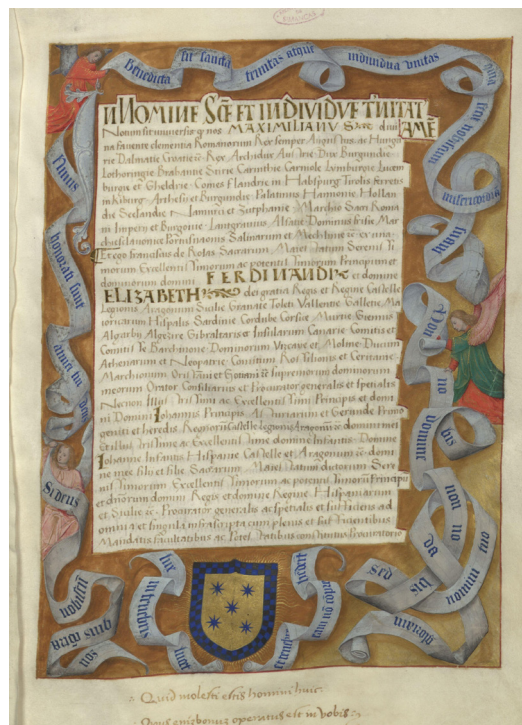 Benedicta sit sancta trinitas atque individua unitas
quia fecit nobiscum
misericordiam
suam
Non no
bis domine
non no
bis
sed
nomini tuo
da
gloriam
Nimis
honorati sunt
amici tui deus
Si deus
nobiscū
quis cōtra
nos
lux
in tenebris
lucet
tenebre
eam nō cōpre
hēderūt
IN NOMINE SCĒ ET INDIVIDVE TNITAT
AMĒ
Notum sit universis q nos MAXIMILIANUS divi
na favente clementia Romanorum Rex semper Augustus ac Hunga
rie Dalmatie Croatie Rex Archidux Austrie Dux Burgundie
Lotharingie Brabantie Stirie Carinthie Carniole Lymburgie Lucem
burgie et Gheldrie Comes Flandrie in Habspurg Tirolis Ferretis
in Kiburg Arthesii et Burgundie Palatinus Hannonie Hollan
die Seelandie Namurci et Zutphanie Marchio Sacri Roma
ni Imperii et Burgonie Lantgravius Alsatie Dominus Frisie Mar
chie Sclavonice Portusnaonis Salinarum et Mechlinie ex una
Et ego franciscus de Rojas Sacrarum Maiestatum Sereni
morum Excellentissimorum ac potentissimorum Principum et
dominorum domini FERDINANDI et domine
ELIZABETH dei gratia Regis et Regine Castelle
Legionis Aragonum Sicilie Granate Toleti Vallentie Gallecie Ma
ioricarum Hispalis Sardinie Cordube Corsice Murcie Giennis
Algarbii Algezire Gibraltaris et Insularum Canarie Comitis et
Comitisse Barchinone Dominorum Vizcaye et Moline Ducum
Athenarum et Neopatrie Comitum Rossilionis et Ceritanie
Marchionum Oristani et Gotiani supremorum dominorum
meorum Orator Consiliarius et Procurator generalis et specialis
Necnon Illustrissimi ac Excellentissimi Principis et domi
ni Domini Iohannis Principis Asturiarum et Gerunde Primo
geniti et heredis Regnorum Castelle legionis Aragonum domini mei
Et Illustrissime ac Excellentissime domine Infantis Domine
Iohanne Infantis Hispanie Castelle et Aragonum domi
ne mee filii et filie Sacrarum Maiestatum dictorum Sere
nissimorum Excellentissimorum ac potentissimorum Principum
et dnorum domini Regis et domine Regine Hispaniarum
et Sicilie Procurator generalis ac specialis et sufficiens ad
omnia et singula infrascripta cum plenis et sufficientibus
Mandatis facultatibus ac Potestatibus constitutus Procuratorio
Quid molesti estis homini huic
Opus enim bonum operatus est in vobis